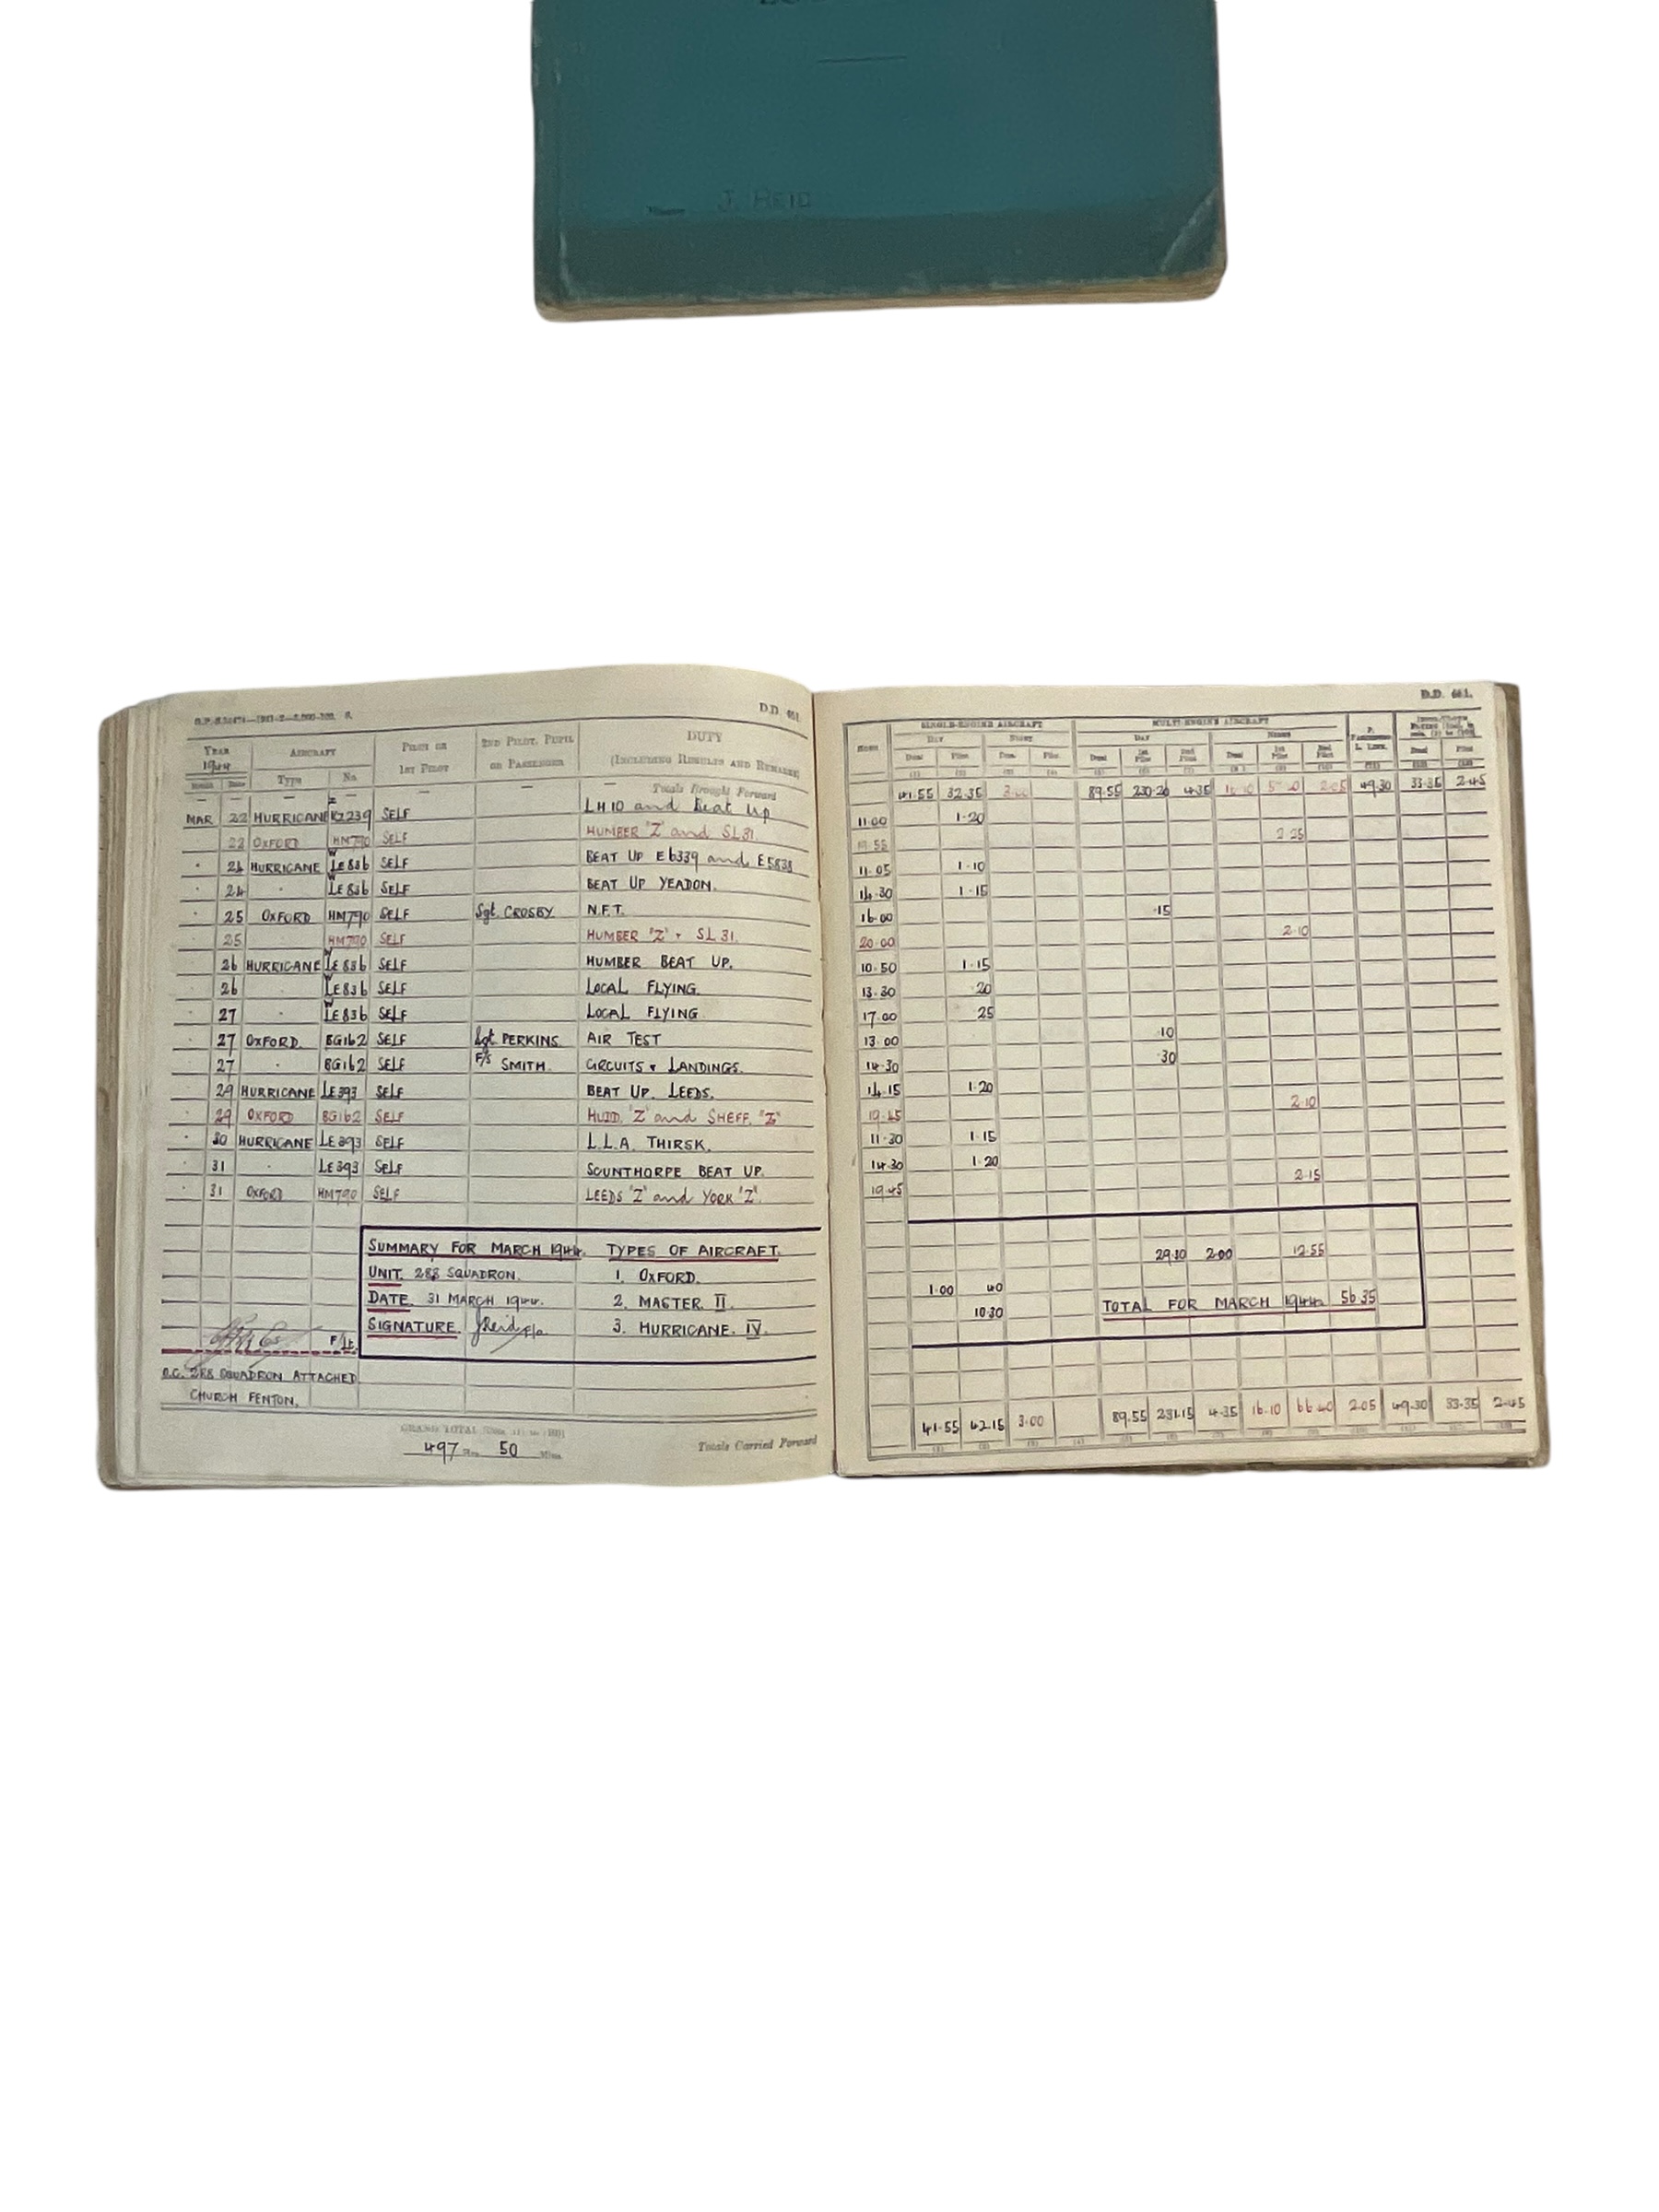 J. REID
D.D. 661.
YEAR AIRCRAFT PILOT OR 2ND PILOT, PUPIL DUTY
1944 Type No. 1ST PILOT OR PASSENGER (INCLUDING RESULTS AND REMARKS)
— — — — — — Totals Brought Forward
MAR 22 HURRICANE KZ239 SELF LH10 and Beat Up
22 OXFORD HM790 SELF HUMBER "Z" and SL31.
24 HURRICANE LE836 SELF BEAT UP E6339 and E5838
24 LE836 SELF BEAT UP YEADON.
25 OXFORD HM790 SELF Sgt. CROSBY N.F.T.
25 HM790 SELF HUMBER "Z" + SL31.
26 HURRICANE LE836 SELF HUMBER BEAT UP.
26 LE836 SELF LOCAL FLYING.
27 LE836 SELF LOCAL FLYING
27 OXFORD. BG162 SELF Sgt. PERKINS. AIR TEST
27 BG162 SELF F/S SMITH. CIRCUITS + LANDINGS.
29 HURRICANE LE393 SELF BEAT UP. LEEDS.
29 OXFORD BG162 SELF HUDD. "Z" and SHEFF. "Z"
30 HURRICANE LE393 SELF L.L.A. THIRSK.
31 LE393 SELF SCUNTHORPE BEAT UP.
31 OXFORD HM790 SELF LEEDS "Z" and YORK "Z".
SUMMARY FOR MARCH 1944. TYPES OF AIRCRAFT.
UNIT. 288 SQUADRON. 1. OXFORD.
DATE. 31 MARCH 1944. 2. MASTER. II.
SIGNATURE. JReid 3. HURRICANE. IV.
F/Lt.
O.C. 288 SQUADRON ATTACHED
CHURCH FENTON.
GRAND TOTAL
497 Hrs. 50 Mins.
Totals Carried Forward
D.D. 661.
SINGLE-ENGINE AIRCRAFT MULTI-ENGINE AIRCRAFT
DAY NIGHT DAY NIGHT
Dual Pilot Dual Pilot Dual 1st Pilot 2nd Pilot Dual 1st Pilot 2nd Pilot Dual Pilot
41.55 32.35 3.00 89.55 230.20 4.35 16.10 2.05 49.30 33.35 2.45
11.00 1.20
2.25
11.05 1.10
14.30 1.15
16.00 .15
20.00 2.10
10.50 1.15
13.30 .20
17.00 25
13.00 .10
14.30 .30
14.15 1.20
19.45 2.10
11.30 1.15
14.30 1.20
19.45 2.15
29.10 2.00 12.55
1.00 40
10.30 TOTAL FOR MARCH 1944 56.35
41.55 42.15 3.00 89.55 231.15 4.35 16.10 66.40 2.05 49.30 33.35 2.45